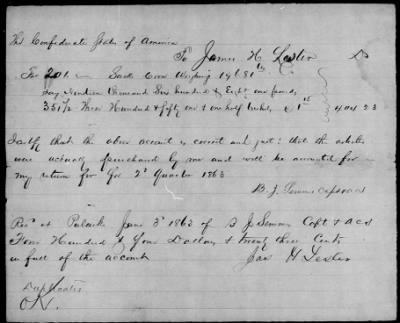 The Confederate States of America
To James H Lester Dr
For 201 Sack Corn Weighing 19681 lbs
Say Nineteen Thousand Six hundred & Eighty one pounds
351 1/2 Three Hundred & fifty one & one half bushs, @ 1 15 404 23
I certify that the above account is correct and just: that the articles
were actually purchased by me and will be accounted for
my return for Qr 2d Quarter 1863
B. J. Semmes Capt & acs
Recd at Pulaski June 3d 1863 of B J Semmes Capt & A C S
Four Hundred & Four Dollars & twenty three Cents
in full of the account
Jas H Lester
Duplicates
OK.